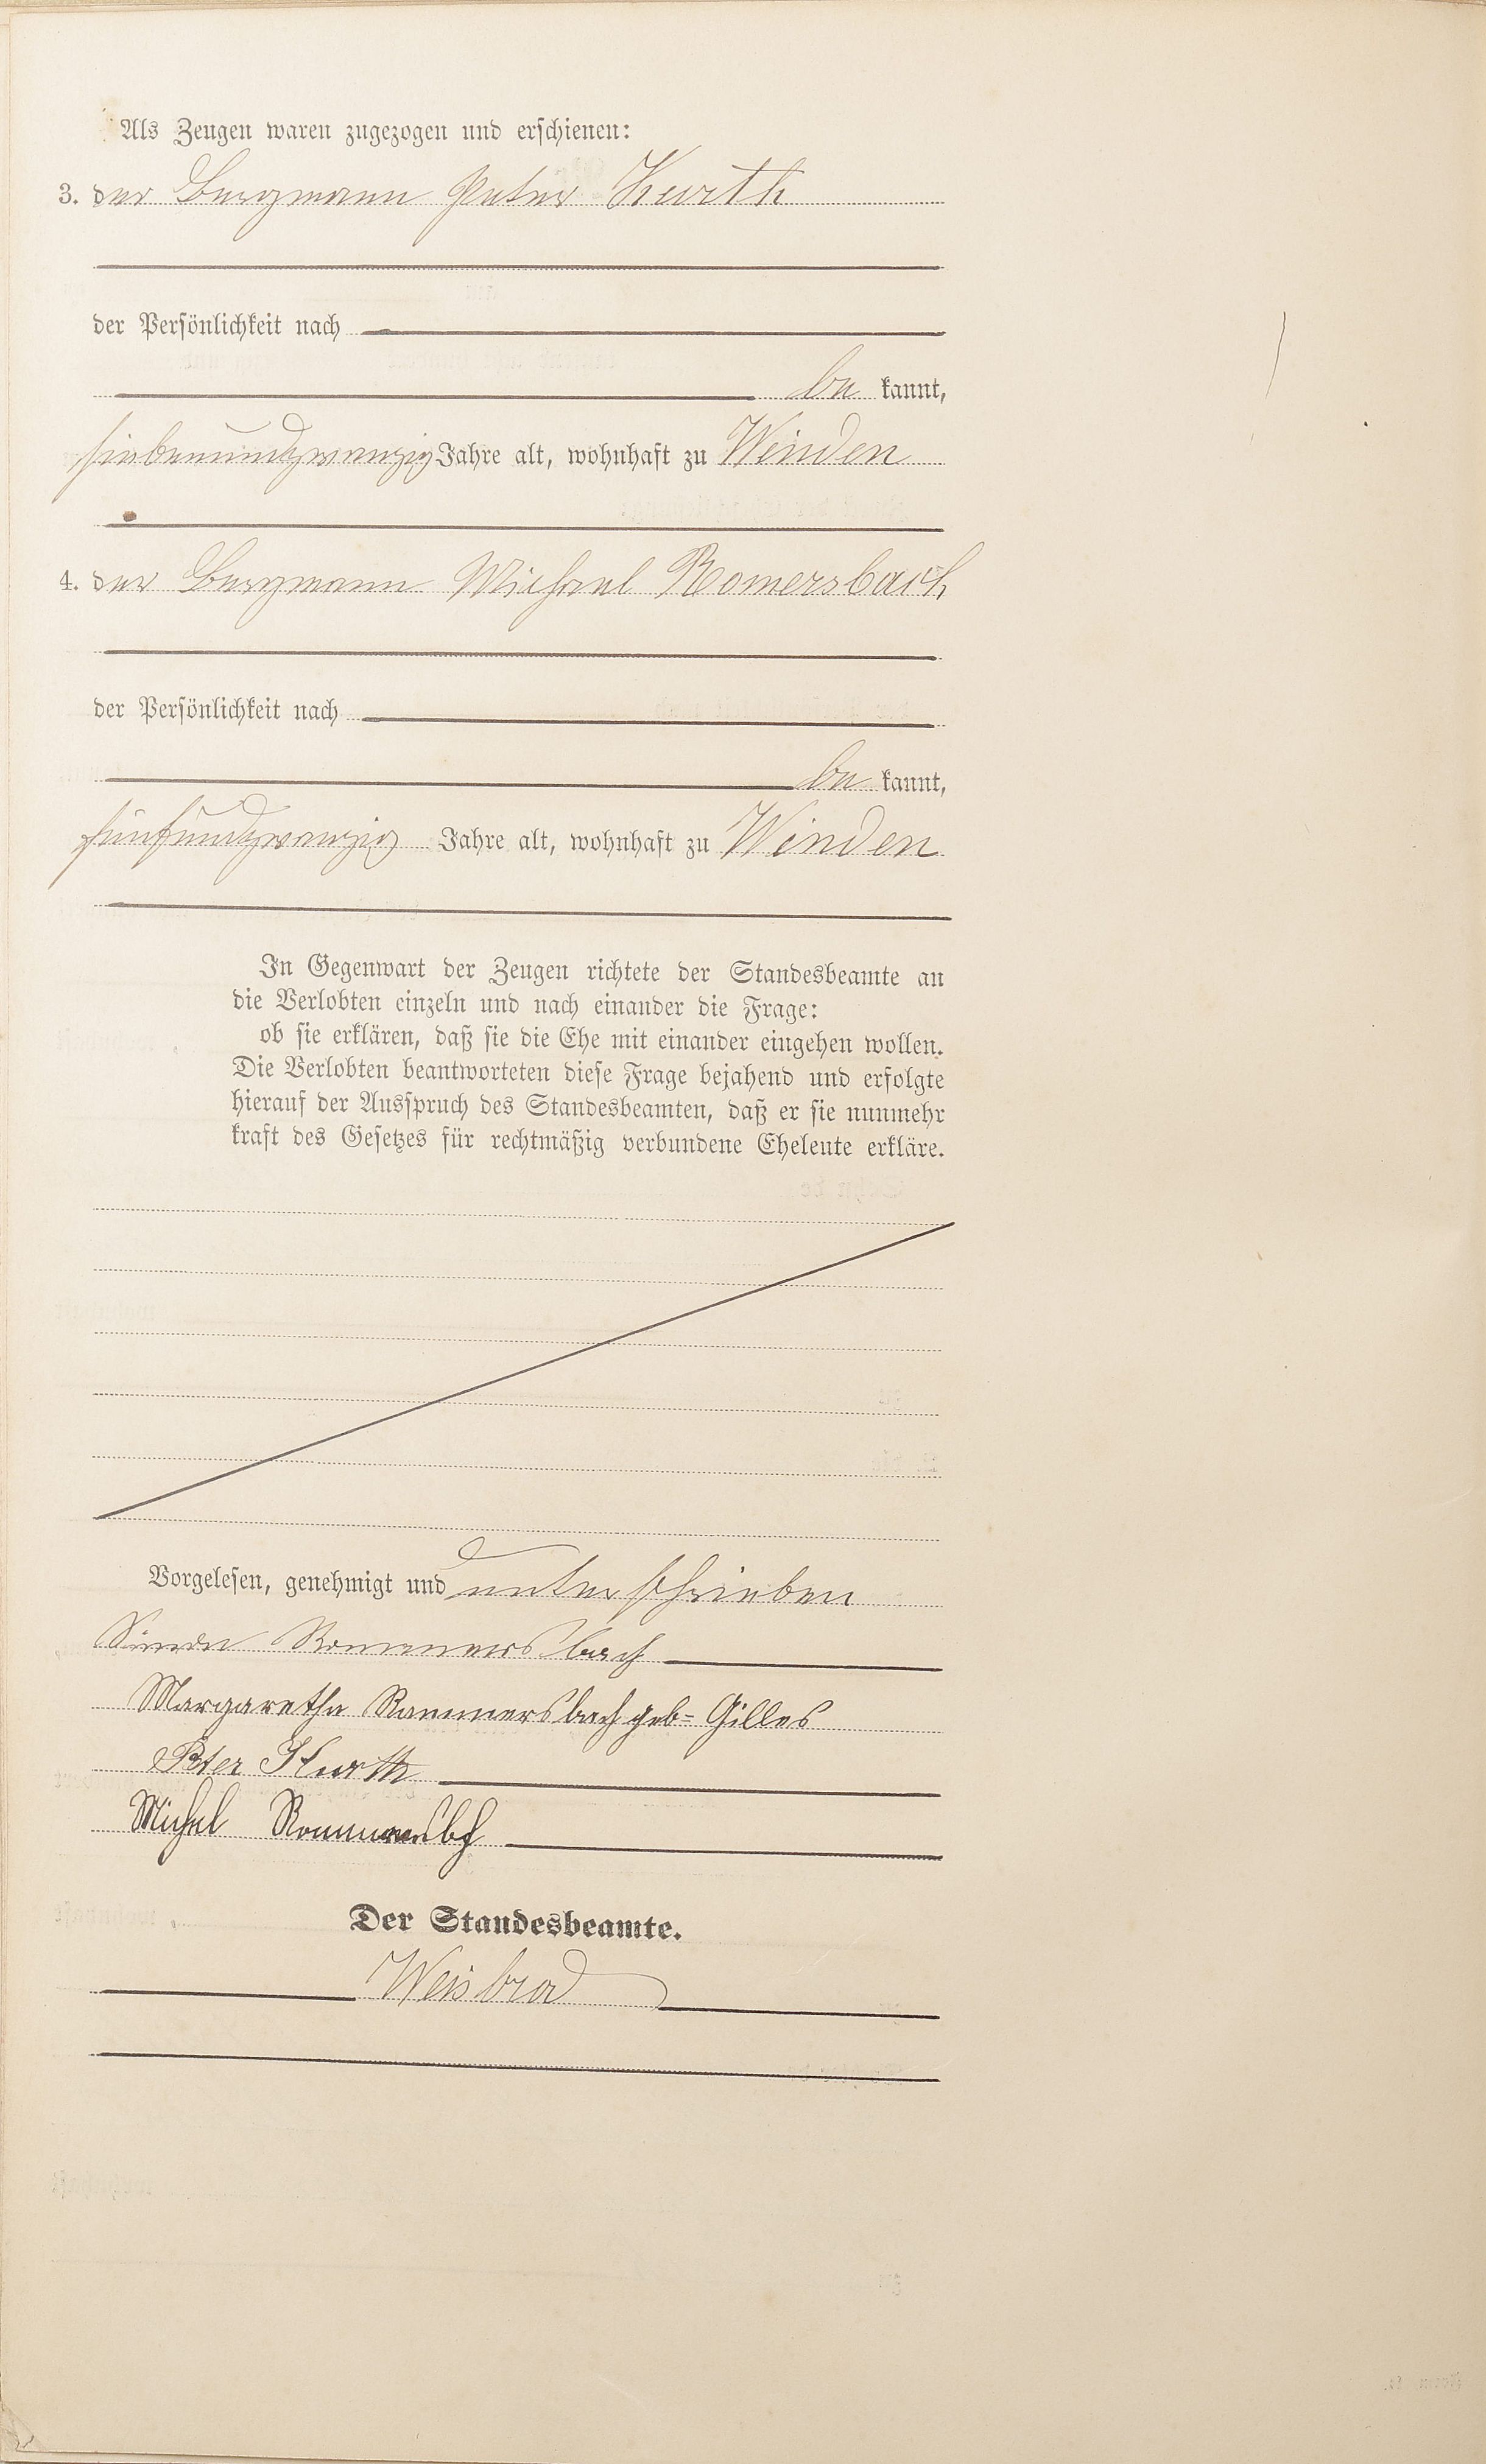 Als Zeugen waren zugezogen und erschienen:
3. der Bergmann Peter Kurth
der Persönlichkeit nach
be kannt,
siebenundzwanzig Jahre alt, wohnhaft zu Winden
4. der Bergmann Michael Romersbach
der Persönlichkeit nach
be kannt,
fünfundzwanzig Jahre alt, wohnhaft zu Winden
In Gegenwart der Zeugen richtete der Standesbeamte an
die Verlobten einzeln und nach einander die Frage:
ob sie erklären, daß sie die Ehe mit einander eingehen wollen.
Die Verlobten beantworteten diese Frage bejahend und erfolgte
hierauf der Ausspruch des Standesbeamten, daß er sie nunmehr
kraft des Gesetzes für rechtmäßig verbundene Eheleute erkläre.
Vorgelesen, genehmigt und unterschrieben
Simon Rommersbach
Margaretha Rommersbach geb= Gilles
Peter Kurth
Michel
Der Standesbeamte.
Weisbrod